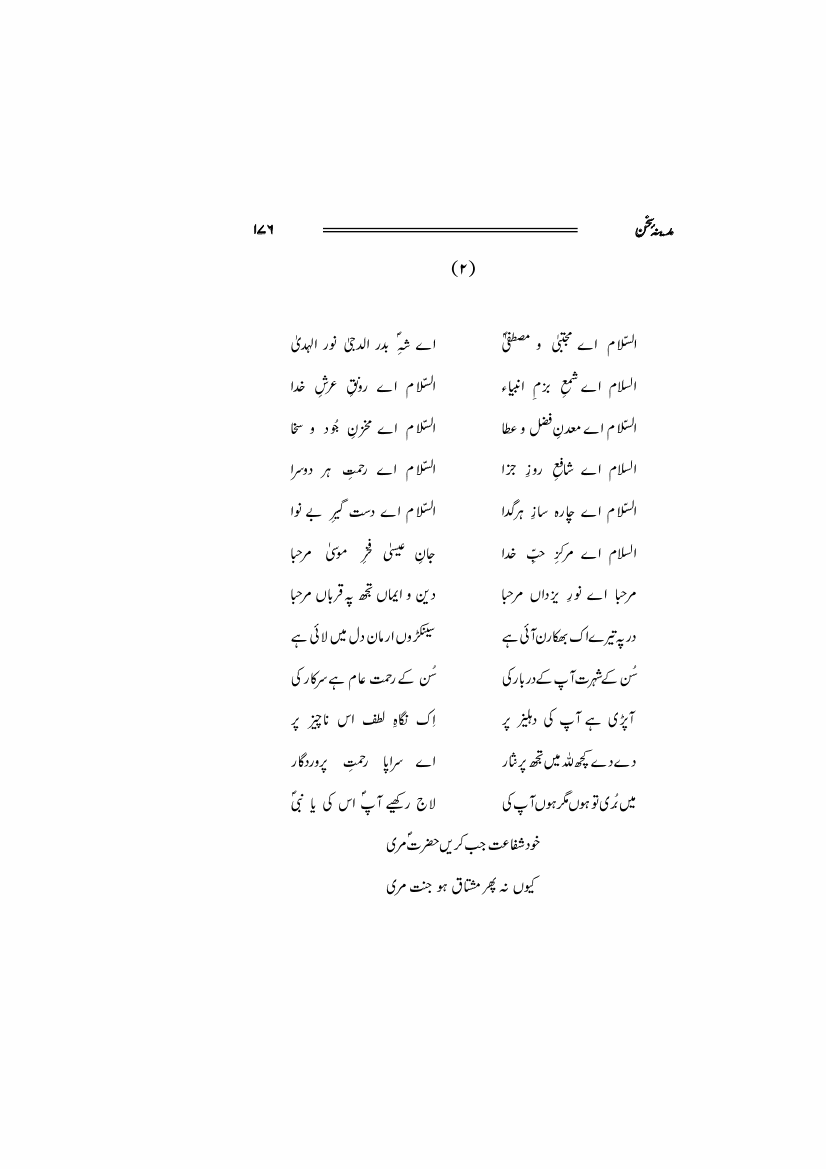 مدینۂ سخن ۱۷۶
(۲)
السّلام اے مجتبیٰ و مصطفیٰؐ اے شہِؐ بدر الدجیٰ نور الہدیٰ
السلام اے شمعِ بزمِ انبیاء السّلام اے رونقِ عرشِ خدا
السّلام اے معدنِ فضل و عطا السّلام اے مخزنِ جُود و سخا
السلام اے شافعِ روزِ جزا السّلام اے رحمتِ ہر دوسرا
السّلام اے چارہ سازِ ہرگدا السّلام اے دست گیرِ بے نوا
السلام اے مرکزِ حبِّ خدا جانِ عیسیٰ فخرِ موسیٰ مرحبا
مرحبا اے نورِ یزداں مرحبا دین و ایماں تجھ پہ قرباں مرحبا
در پہ تیرے اک بھکارن آئی ہے سینکڑوں ارمان دل میں لائی ہے
سُن کے شہرت آپ کے دربار کی سُن کے رحمت عام ہے سرکار کی
آپڑی ہے آپ کی دہلیز پر اِک نگاہِ لطف اس ناچیز پر
دے دے کچھ للہ میں تجھ پر نثار اے سراپا رحمتِ پروردگار
میں بُری تو ہوں مگر ہوں آپ کی لاج رکھیے آپؐ اس کی یا نبیؐ
خود شفاعت جب کریں حضرتؐ مری
کیوں نہ پھر مشتاق ہو جنت مری